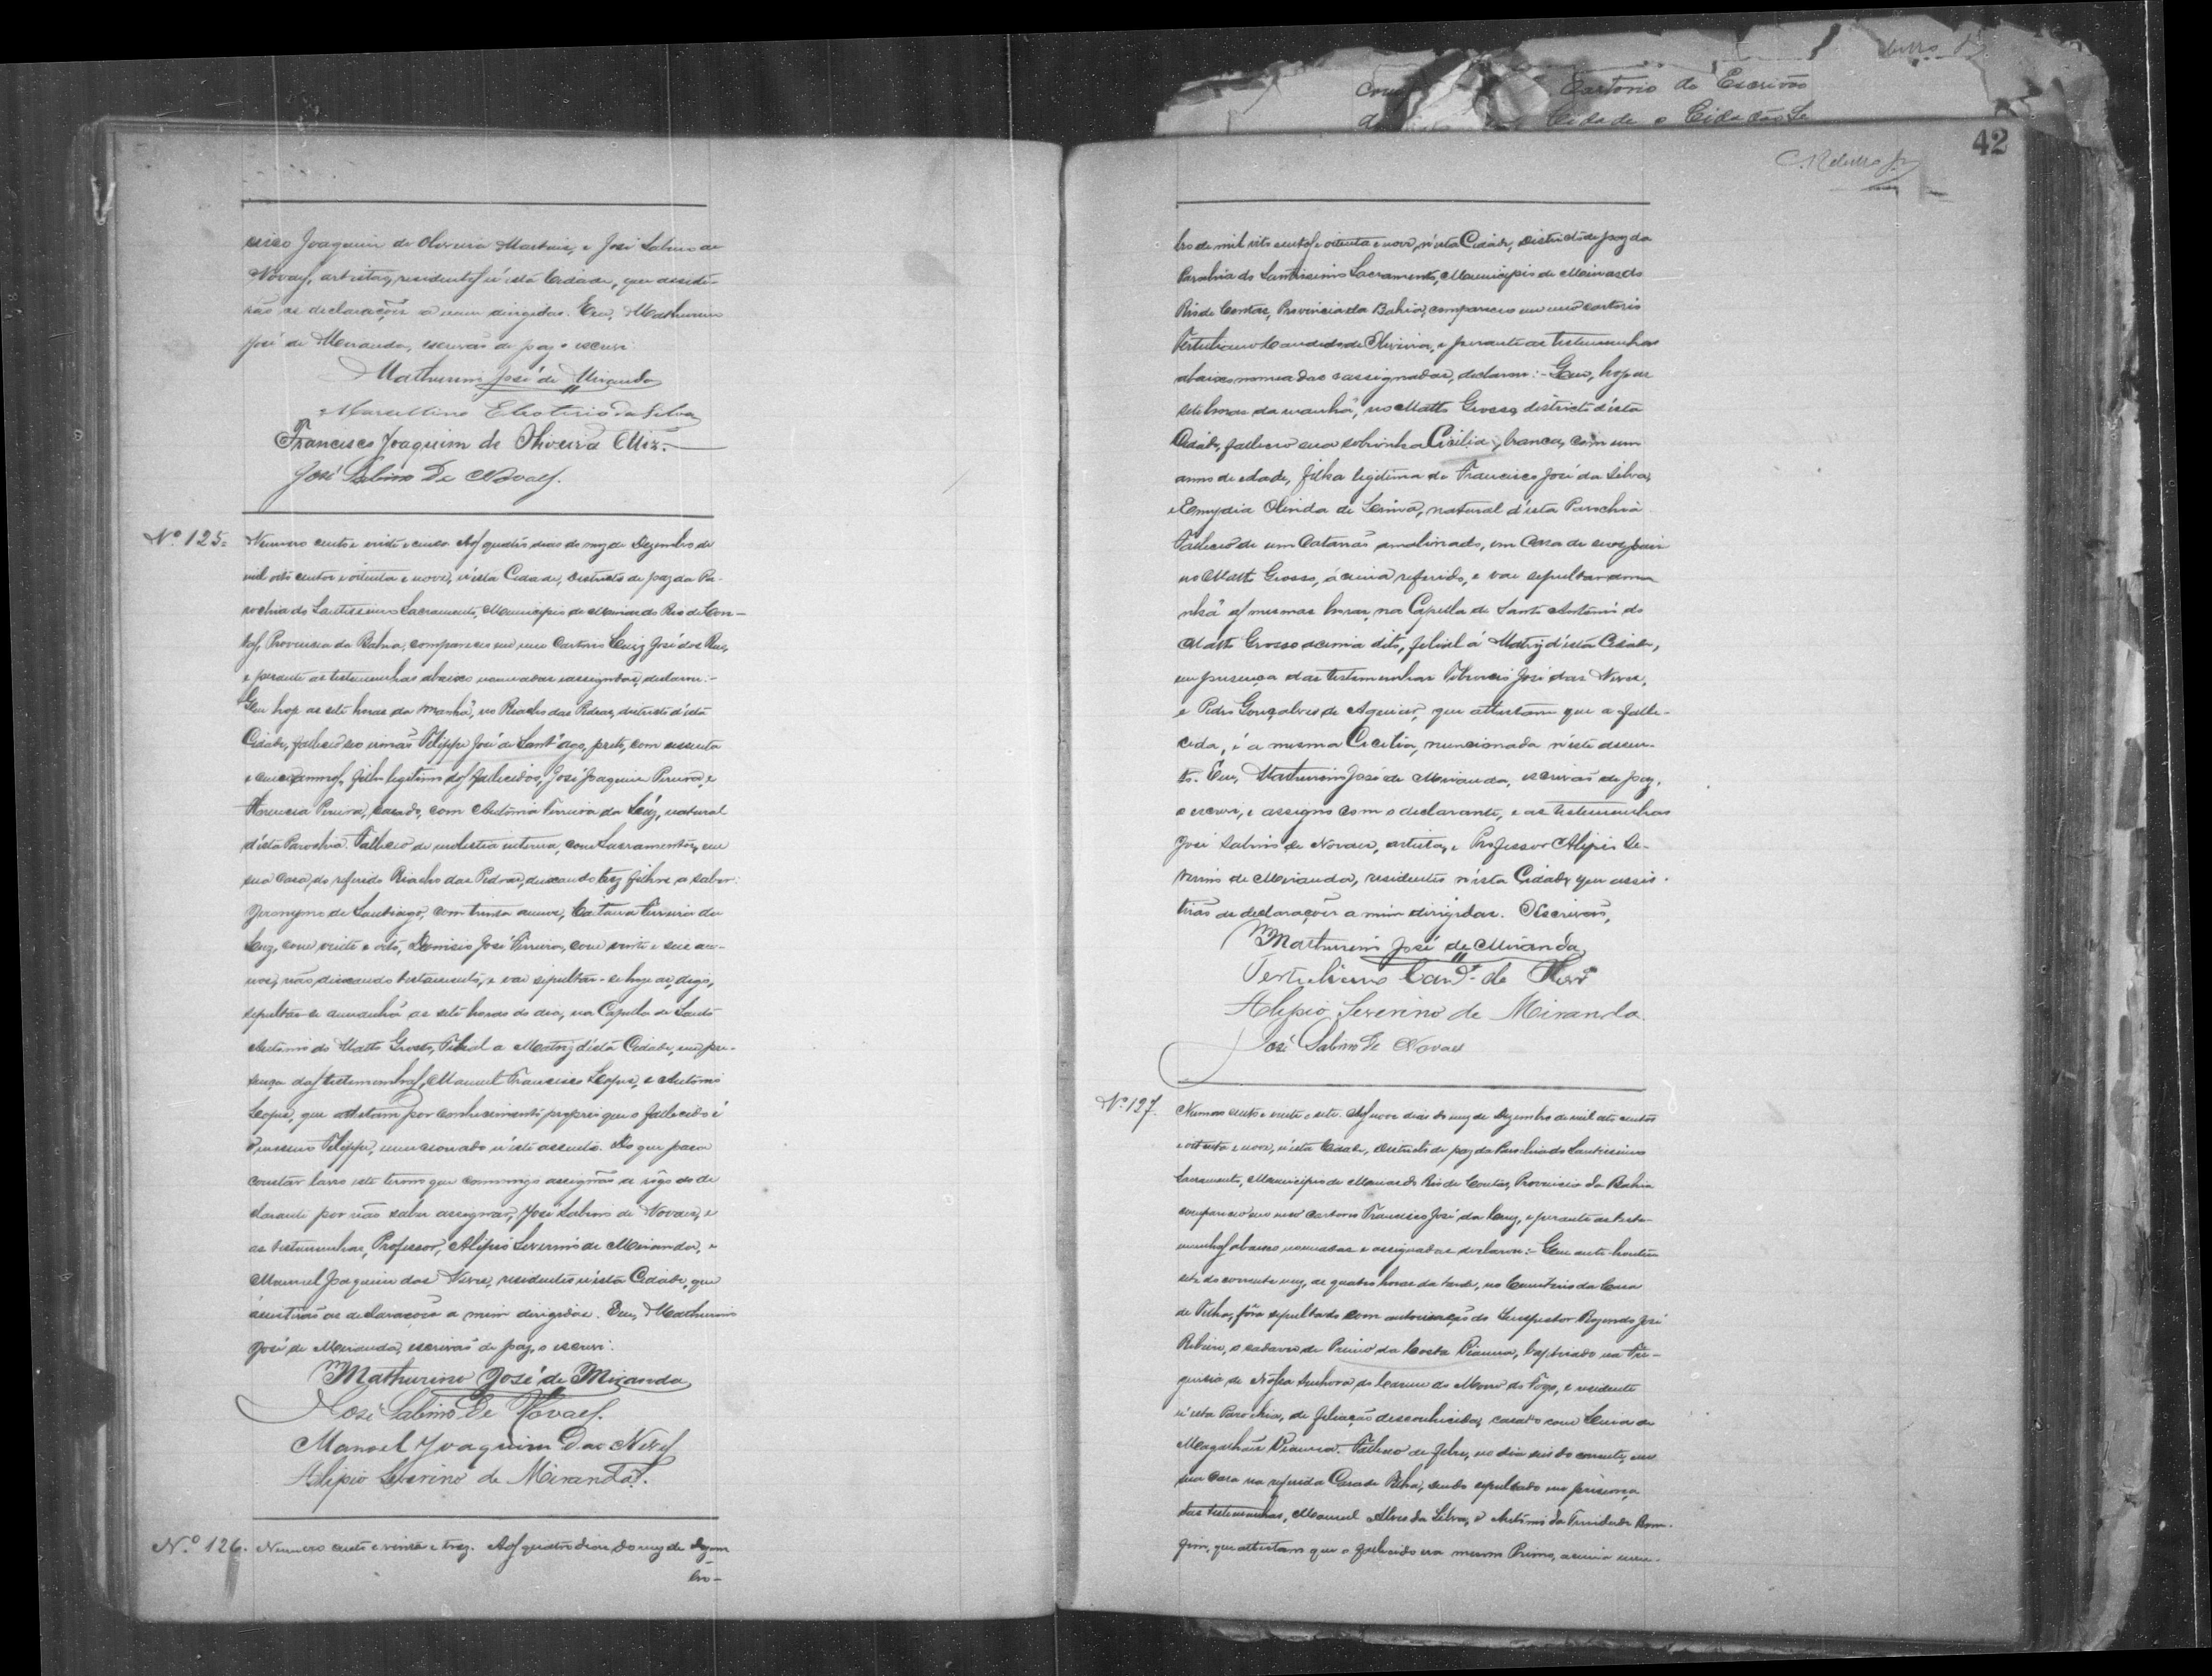 Cartorio do Escrivão
Cidade o Cidadão
42
cisco Joaquim de Oliveira Martins, e José Sabino de
Novaes, artistas, residentes n'esta Cidade, que assisti-
rão as declarações a mim dirigidas. Eu, Mathurino
José de Miranda, escrivão de paz o escrevi.
Mathurino José de Miranda
Marcellino Eleoterio da Silva
Francisco Joaquim de Oliveira Miz.
José Sabino De Novaes.
Nº 125.
Numero cento e vinte e cinco. Aos quatro dias do mez de Dezembro de
mil oito centos e oitenta e nove, n'esta Cidade, Districto de paz da Pa-
rochia do Santissimo Sacramento, Municipio de Minas do Rio de Con-
tas, Provincia da Bahia, compareceo em meu Cartorio Luiz José dos Reis,
e perante as testemunhas abaixo nomeadas e assignadas, declarou:-
Que hoje as sete horas da manhã, no Riacho das Pedras, districto d'esta
Cidade, falleceo seo irmão Felippe José de Sant'ago, preto, com sessenta
e cinco annos, filho legitimo dos fallecidos, José Joaquim Pereira, e
Florencia Pereira, casado, com Antonia Ferreira da Luz, natural
d'esta Parochia. Falleceo de molestia interna, com Sacramentos, em
sua casa, do referido Riacho das Pedras, deixando trez filhos a saber:
Jeronymo de Santiago, com trinta annos, Caetana Ferreira da
Luz, com vinte e oito, Dionisio José Ferreira, com vinte e seis an-
nos, não deixando testamento, e vae sepultar-se hoje as, digo,
sepultar-se amanhã as sete horas do dia, na Capella de Santo
Antonio do Matto Grosso, Filial a Matriz d'esta Cidade, em pre-
sença das testemunhas, Manuel Francisco Lopes, e Antonio
Lopes, que attestam por conhecimento proprio que o fallecido é
o mesmo Felippe, mencionado n'este assento. Do que para
constar lavro este termo que commigo assignão a rôgo do de
clarante por não saber assignar, José Sabino de Novaes, e
as testemunhas, Professor, Alipio Severino de Miranda, e
Manuel Joaquim das Neves, residentes n'esta Cidade, que
assistirão as declarações a mim dirigidas. Eu, Mathurino
José de Miranda, escrivão de paz, o escrevi.
Mathurino José de Miranda
José Sabino De Novaes.
Manoel Joaquim Das Neves
Alipio Severino de Miranda.
Nº 126.
Numero cento e vinte e trez. Aos quatro dias do mez de Dezem
bro-
bro de mil oito centos e oitenta e nove, n'esta Cidade, Districto de paz da
Parochia do Santissimo Sacramento, Municipio de Minas do
Rio de Contas, Provincia da Bahia, compareceo em meu cartorio
Tertuliano Candido de Oliveira, e perante as testemunhas
abaixo nomeadas e assignadas, declarou:- Que, hoje as
sete horas da manhã, no Matto Grosso, districto d'esta
Cidade, falleceo sua sobrinha Cicilia, branca, com um
anno de edade, filha legitima de Francisco José da Silva,
e Emygdia Olinda de Lima, natural d'esta Parochia.
Falleceo de um Catarrão amalinado, em Casa de seos pais
no Matto Grosso, ácima referido, e vae sepultar ama
nhã as mesmas horas, na Capella de Santo Antonio do
Matto Grosso acima dito, filial á Matriz d'esta Cidade,
em presença das testemunhas Tiburcio José das Neves,
e Pedro Gonçalves de Aguiar, que attestam que a falle-
cida, é a mesma Cicilia, mencionada n'este assen-
to. Eu, Mathurino José de Miranda, escrivão de paz,
o escrevi, e assigno com o declarante, e as testemunhas
José Sabino de Novaes, artista, e Professor Alipio Se-
verino de Miranda, residentes n'esta Cidade, que assis-
tirão as declarações a mim dirigidas. O Escrivão,
Mathurino José de Miranda
Tertuliano Candº de Olivrª
Alipio Severino de Miranda.
José Sabino De Novaes
Nº 127.
Numero cento e vinte e sete. Aos nove dias do mez de Dezembro de mil oito centos
e oitenta e nove, n'esta Cidade, Districto de paz da Parochia do Santissimo
Sacramento, Municipio de Minas do Rio de Contas, Provincia da Bahia
compareceo em meu cartorio Francisco José da Cruz, e perante as teste-
munhas abaixo nomeadas e assignadas declarou:- Que ante-hontem
sete do corrente mez, as quatro horas da tarde, no Cemiterio da Casa
de Telha, fôra sepultado com autorisação do Inspector Rozendo José
Ribeiro, o cadaver de Primo da Costa Vianna, baptisado na Fre-
guesia de Nossa Senhora do Carmo do Morro do Fogo, e residente
n'esta Parochia, de filiação desconhecida, casado com
Magalhães Vianna. Falleceo de febre, no dia seis do corrente, em
sua casa na referida Casa de Telha, sendo sepultado em prisença
das testemunhas, Manuel Alves da Silva, e Antonio da Trindade Bom-
fim, que attestam que o fallecido era mesmo Primo, acima men-